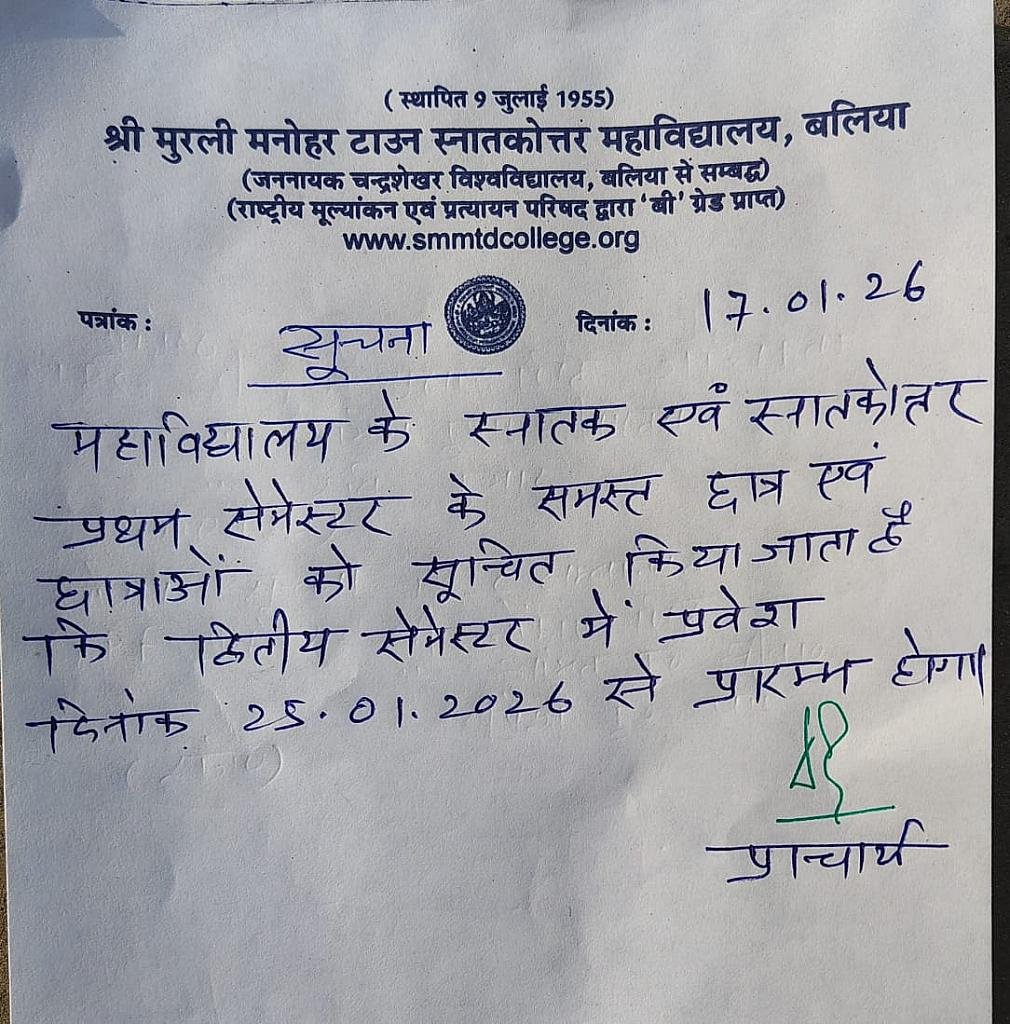 ( स्थापित 9 जुलाई 1955)
श्री मुरली मनोहर टाउन स्नातकोत्तर महाविद्यालय, बलिया
(जननायक चन्द्रशेखर विश्वविद्यालय, बलिया सें सम्बद्ध)
(राष्ट्रीय मूल्यांकन एवं प्रत्यायन परिषद द्वारा 'बी' ग्रेड प्राप्त)
www.smmtdcollege.org
पत्रांक : दिनांक : 17.01.26
सूचना
महाविद्यालय के स्नातक एवं स्नातकोत्तर
प्रथम सेमेस्टर के समस्त छात्र एवं
छात्राओं को सूचित किया जाता है
कि द्वितीय सेमेस्टर में प्रवेश
दिनांक 25.01.2026 से प्रारम्भ होगा।
प्राचार्य